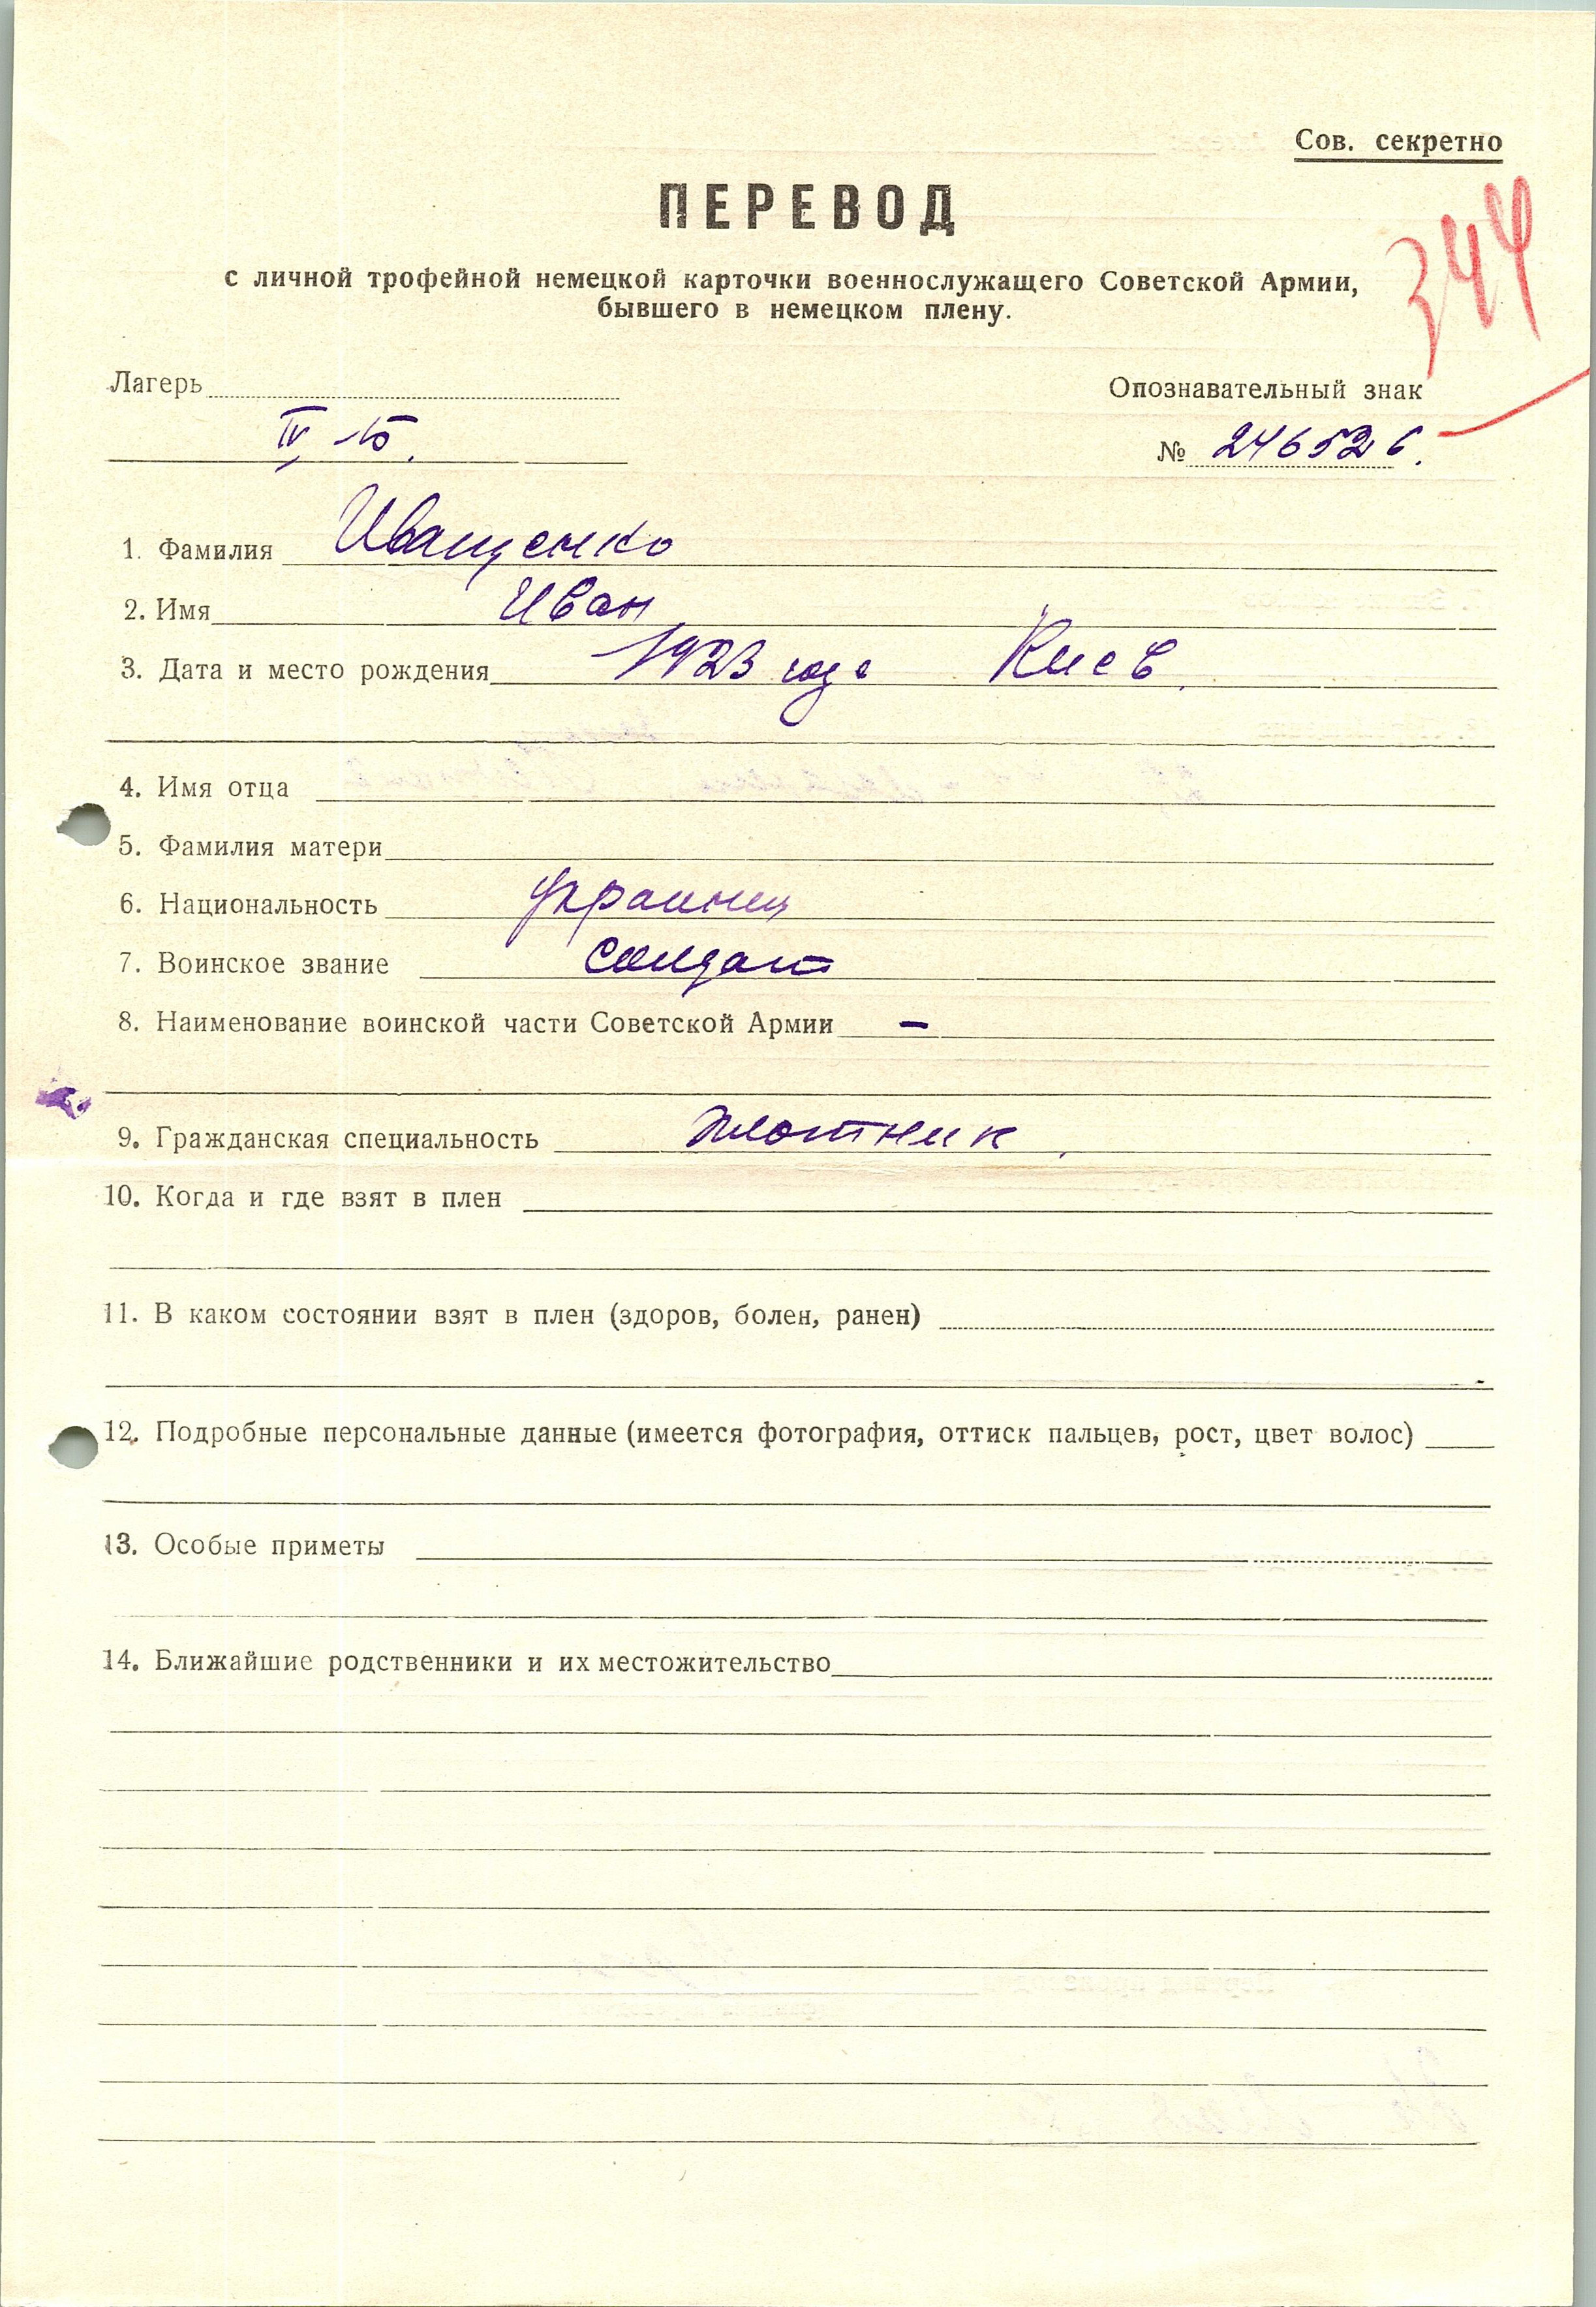 Сов. секретно
ПЕРЕВОД
с личной трофейной немецкой карточки военнослужащего Советской Армии,
бывшего в немецком плену.
344
Лагерь
Опознавательный знак
IV Б.
№ 246526.
1. Фамилия Иващенко
2. Имя Иван
3. Дата и место рождения 1923 года Киев.
4. Имя отца
5. Фамилия матери
6. Национальность украинец
7. Воинское звание солдат
8. Наименование воинской части Советской Армии –
9. Гражданская специальность плотник.
10. Когда и где взят в плен
11. В каком состоянии взят в плен (здоров, болен, ранен)
12. Подробные персональные данные (имеется фотография, оттиск пальцев, рост, цвет волос)
13. Особые приметы
14. Ближайшие родственники и их местожительство